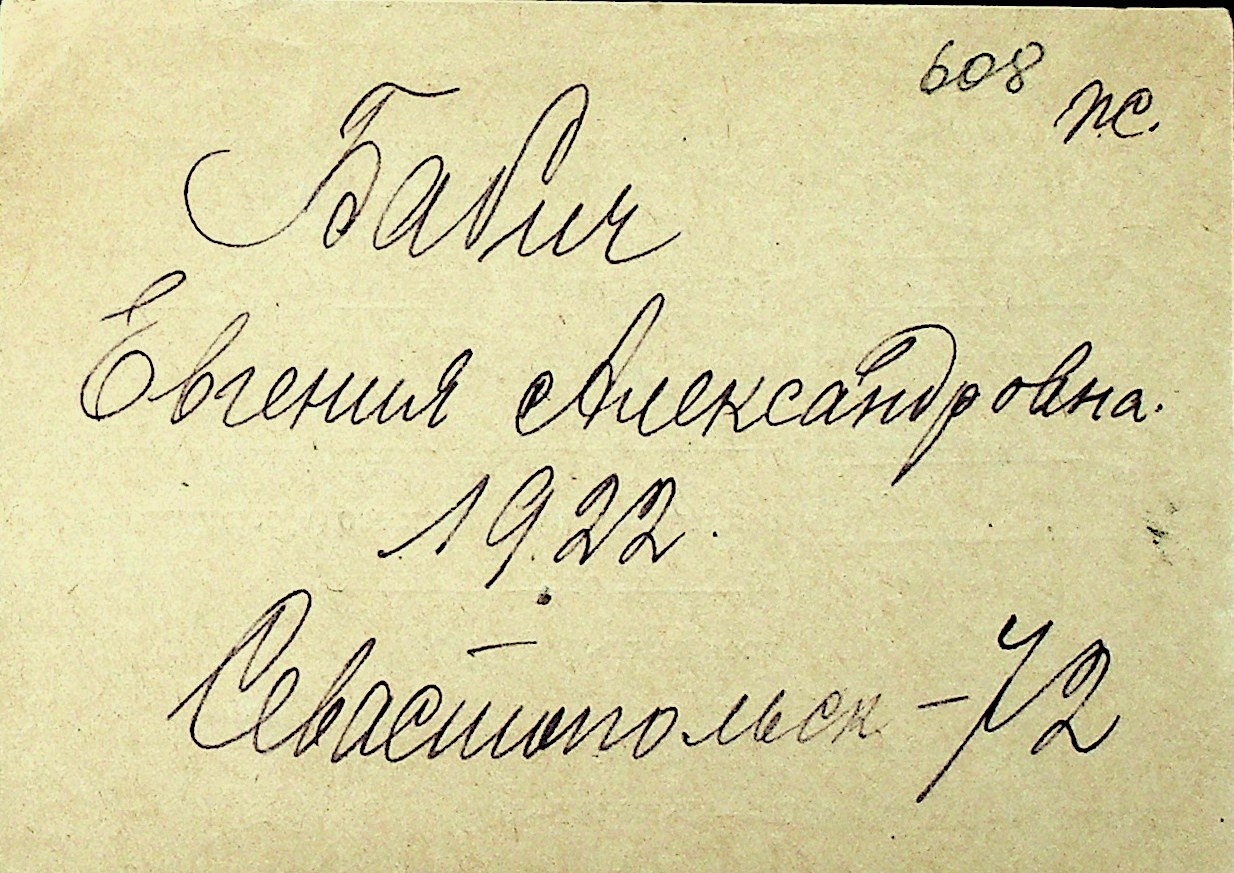 608
пс.
Бабич
Евгения Александровна.
1922.
Севастопольск - 72